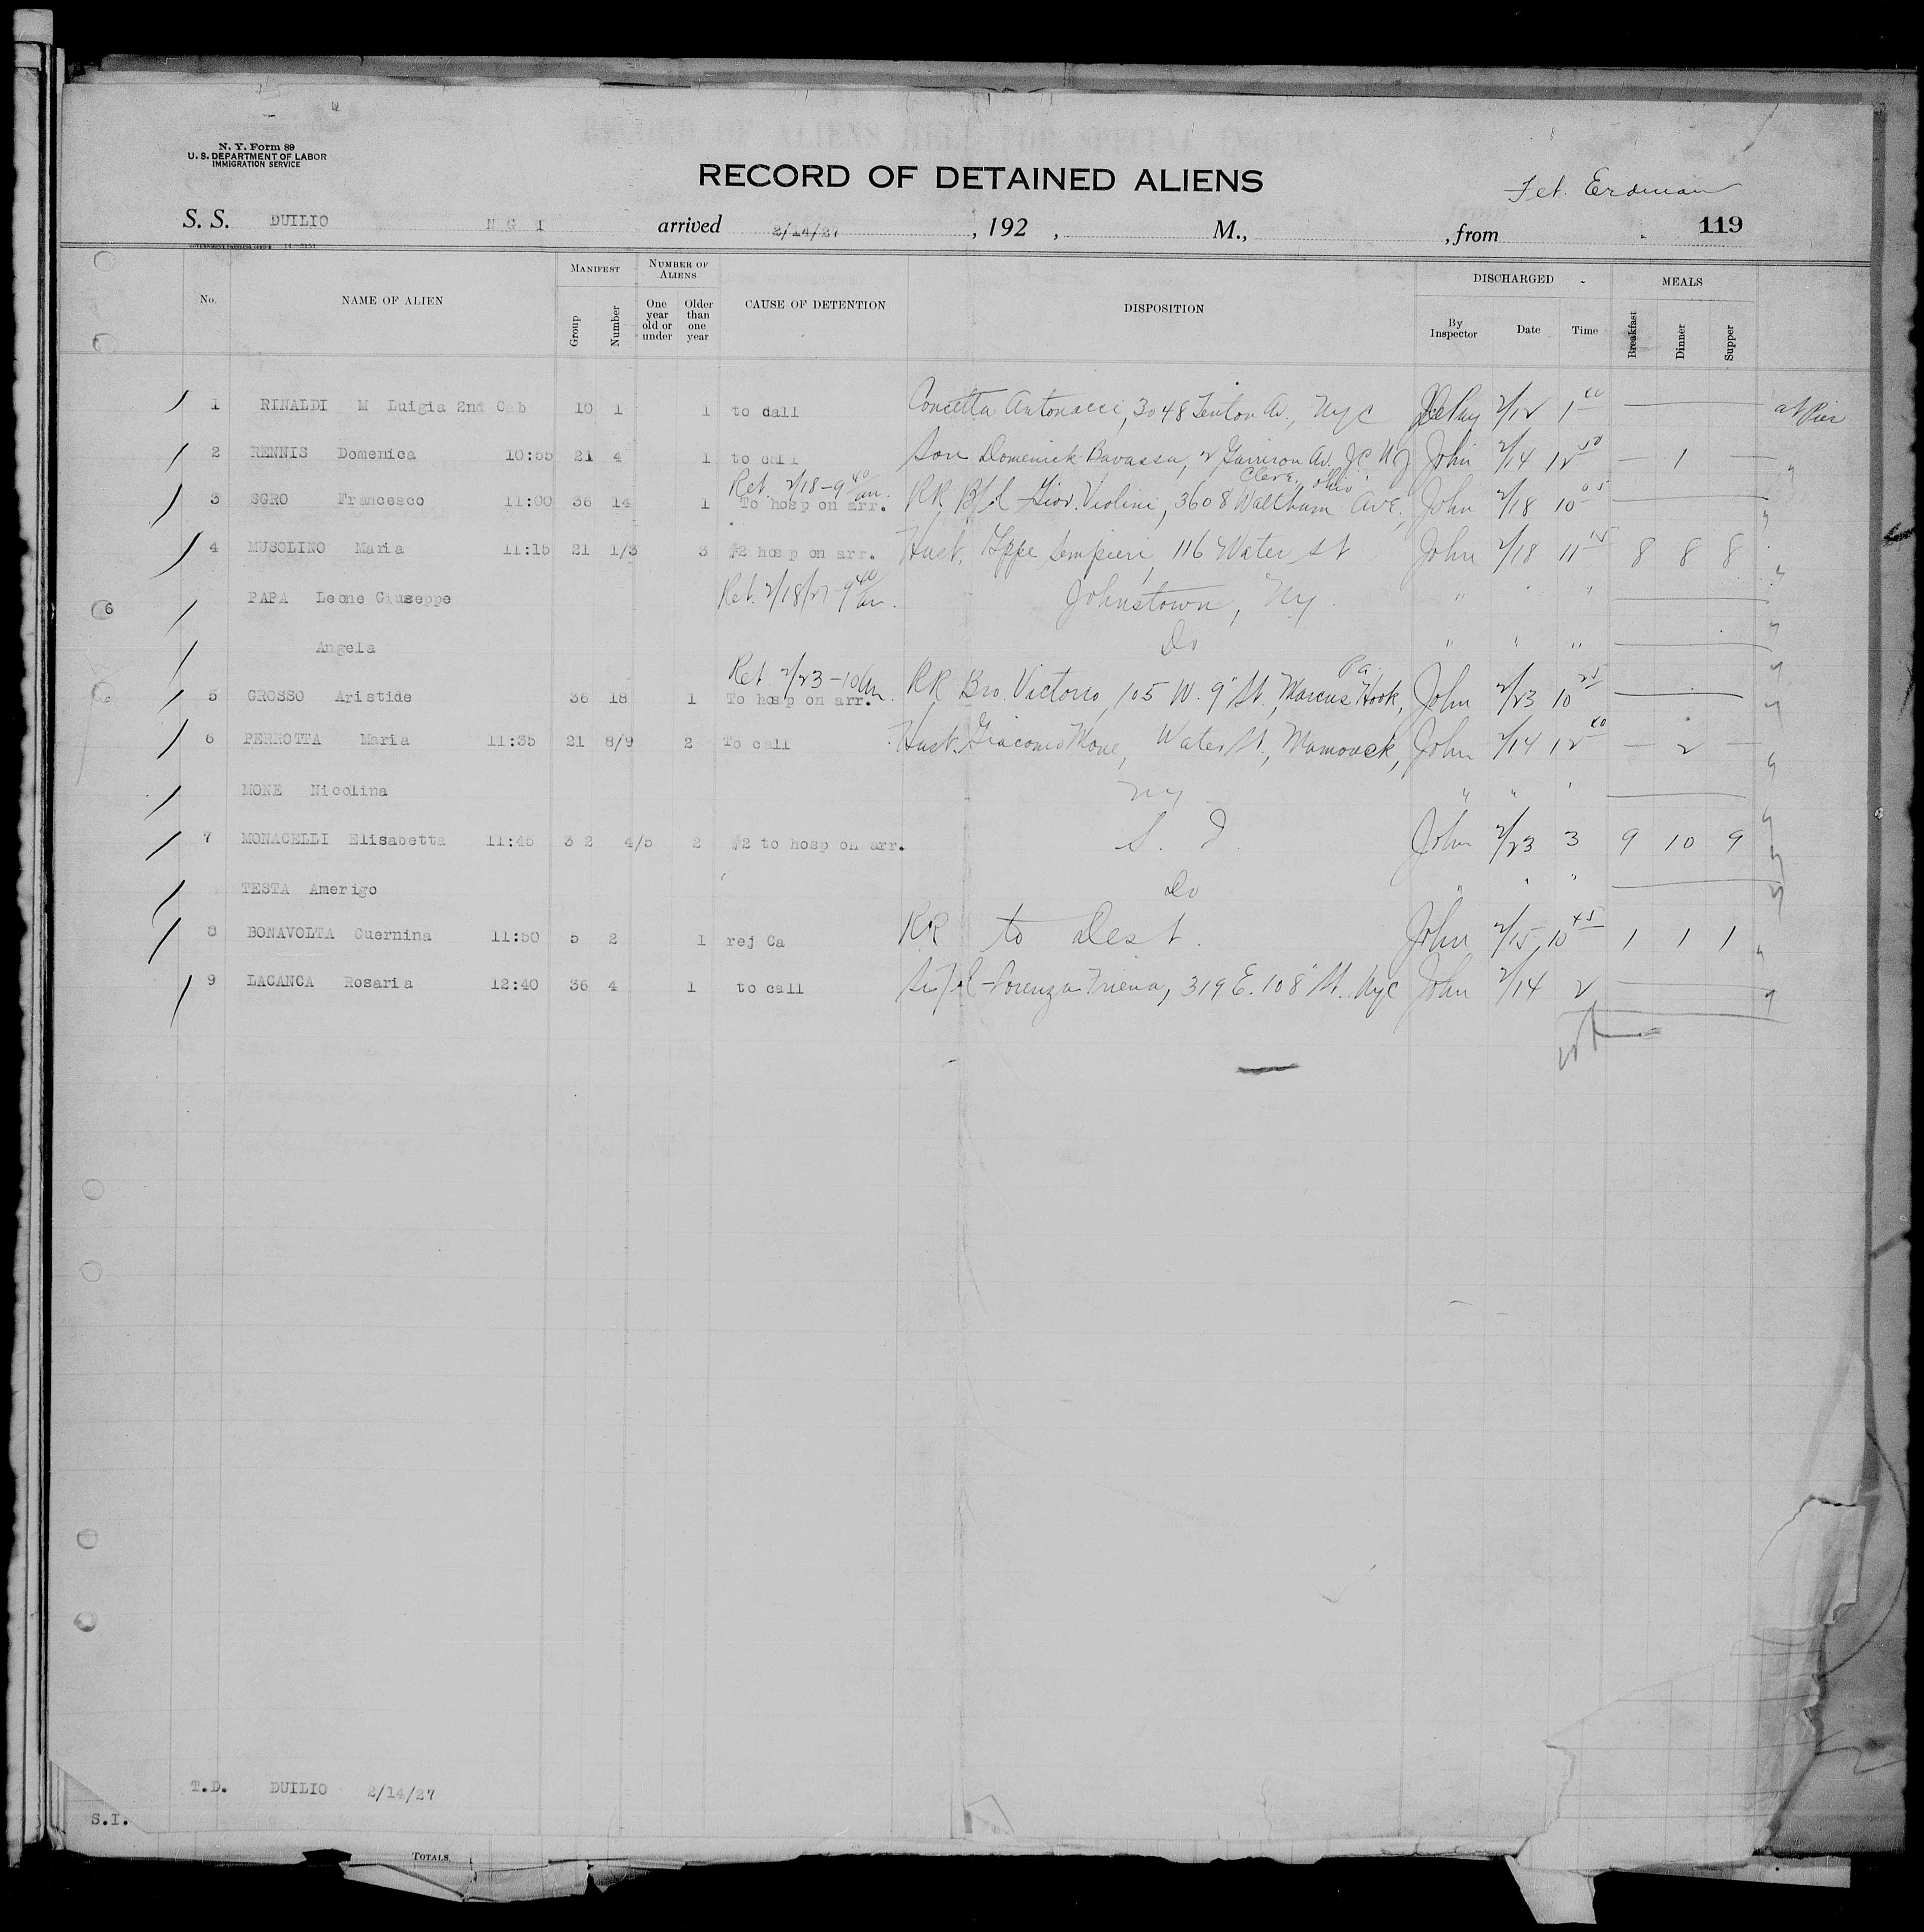 N. Y. Form 89
U. S. DEPARTMENT OF LABOR
IMMIGRATION SERVICE
RECORD OF DETAINED ALIENS
Erdman
S. S. DUILIO N G I arrived 2/14/27, 192 , M., , from 119
No. NAME OF ALIEN MANIFEST NUMBER OF ALIENS CAUSE OF DETENTION DISPOSITION DISCHARGED MEALS
Group Number One year old or under Older than one year By Inspector Date Time Breakfast Dinner Supper
1 RINALDI M Luigia 2nd Cab 10 1 1 to call Concetta Antonacci, 3048 Av., NYC 2/12 1 00 at Pier
2 RENNIS Domenica 10:55 21 4 1 to call Son Domenick Bavassa, 2 Garrison Av. JC NJ John 2/14 12 50 — 1 —
Ret. 2/18 - 9 40 am. Cleve., Ohio
3 SGRO Francesco 11:00 36 14 1 To hosp on arr. RR B/l Giov. Violini, 3608 Waltham Ave., John 2/18 10 05
4 MUSOLINO Maria 11:15 21 1/3 3 #2 hosp on arr. Husb. 116 Water St John 2/18 11 15 8 8 8
PAPA Leone Giuseppe Ret. 2/18/27 9 40 am. Johnstown, NY. " " "
6
Angela Do " " "
Ret. 2/23 - 10 am. Pa.
5 GROSSO Aristide 36 18 1 To hosp on arr. RR Bro. Victorio, 105 W. 9" St., Marcus Hook, John 2/23 10 25
6 PERROTTA Maria 11:35 21 8/9 2 To call Husb. Giacomo Mone, Water St., John 2/14 12 — 2 —
MONE Nicolina NY " " "
7 MONACELLI Elisabetta 11:45 32 4/5 2 #2 to hosp on arr. S. I. John 2/23 3 9 10 9
TESTA Amerigo Do " " "
8 BONAVOLTA Guernina 11:50 5 2 1 rej Ca RR to Dest. John 2/15 10 45 1 1 1
9 LACANCA Rosaria 12:40 36 4 1 to call Lorenza 319 E. 108" St. NYC John 2/14 2
T.D. DUILIO 2/14/27
S.I.
TOTALS